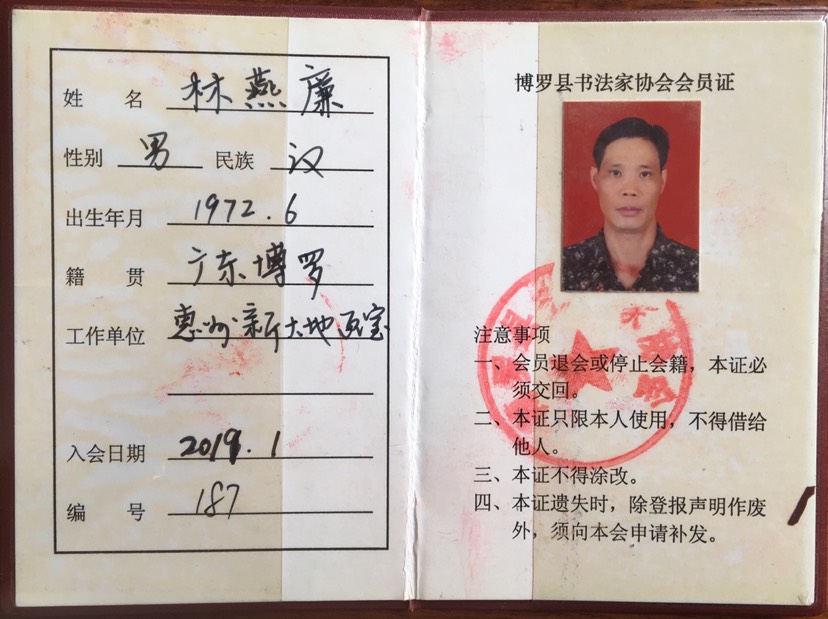 姓 名 林燕廉
性别 男 民族 汉
出生年月 1972.6
籍 贯 广东博罗
工作单位 惠州新大地画室
入会日期 2019.1
编 号 187
博罗县书法家协会会员证
注意事项
一、会员退会或停止会籍，本证必
须交回。
二、本证只限本人使用，不得借给
他人。
三、本证不得涂改。
四、本证遗失时，除登报声明作废
外，须向本会申请补发。